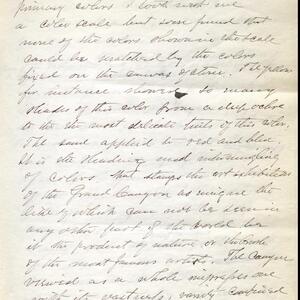 primary colors I took with me
a color scale but soon found that
none of the colors shown in the scale
could be matched by the colors
fixed on the canvas of stone. The yellow
for instance showed so many
shades of this color from a deep ochre
to the the most delicate tints of this color.
The same applied to red and blue.
It is the blending and intermingling
of colors that stamps the art exhibitions
of the Grand Canyon as unique the
like of which can not be seen in
any other part of the world be
it the product of nature or the
of the most famous artists. The Canyon
viewed as a whole impresses one
with its vastness, variety